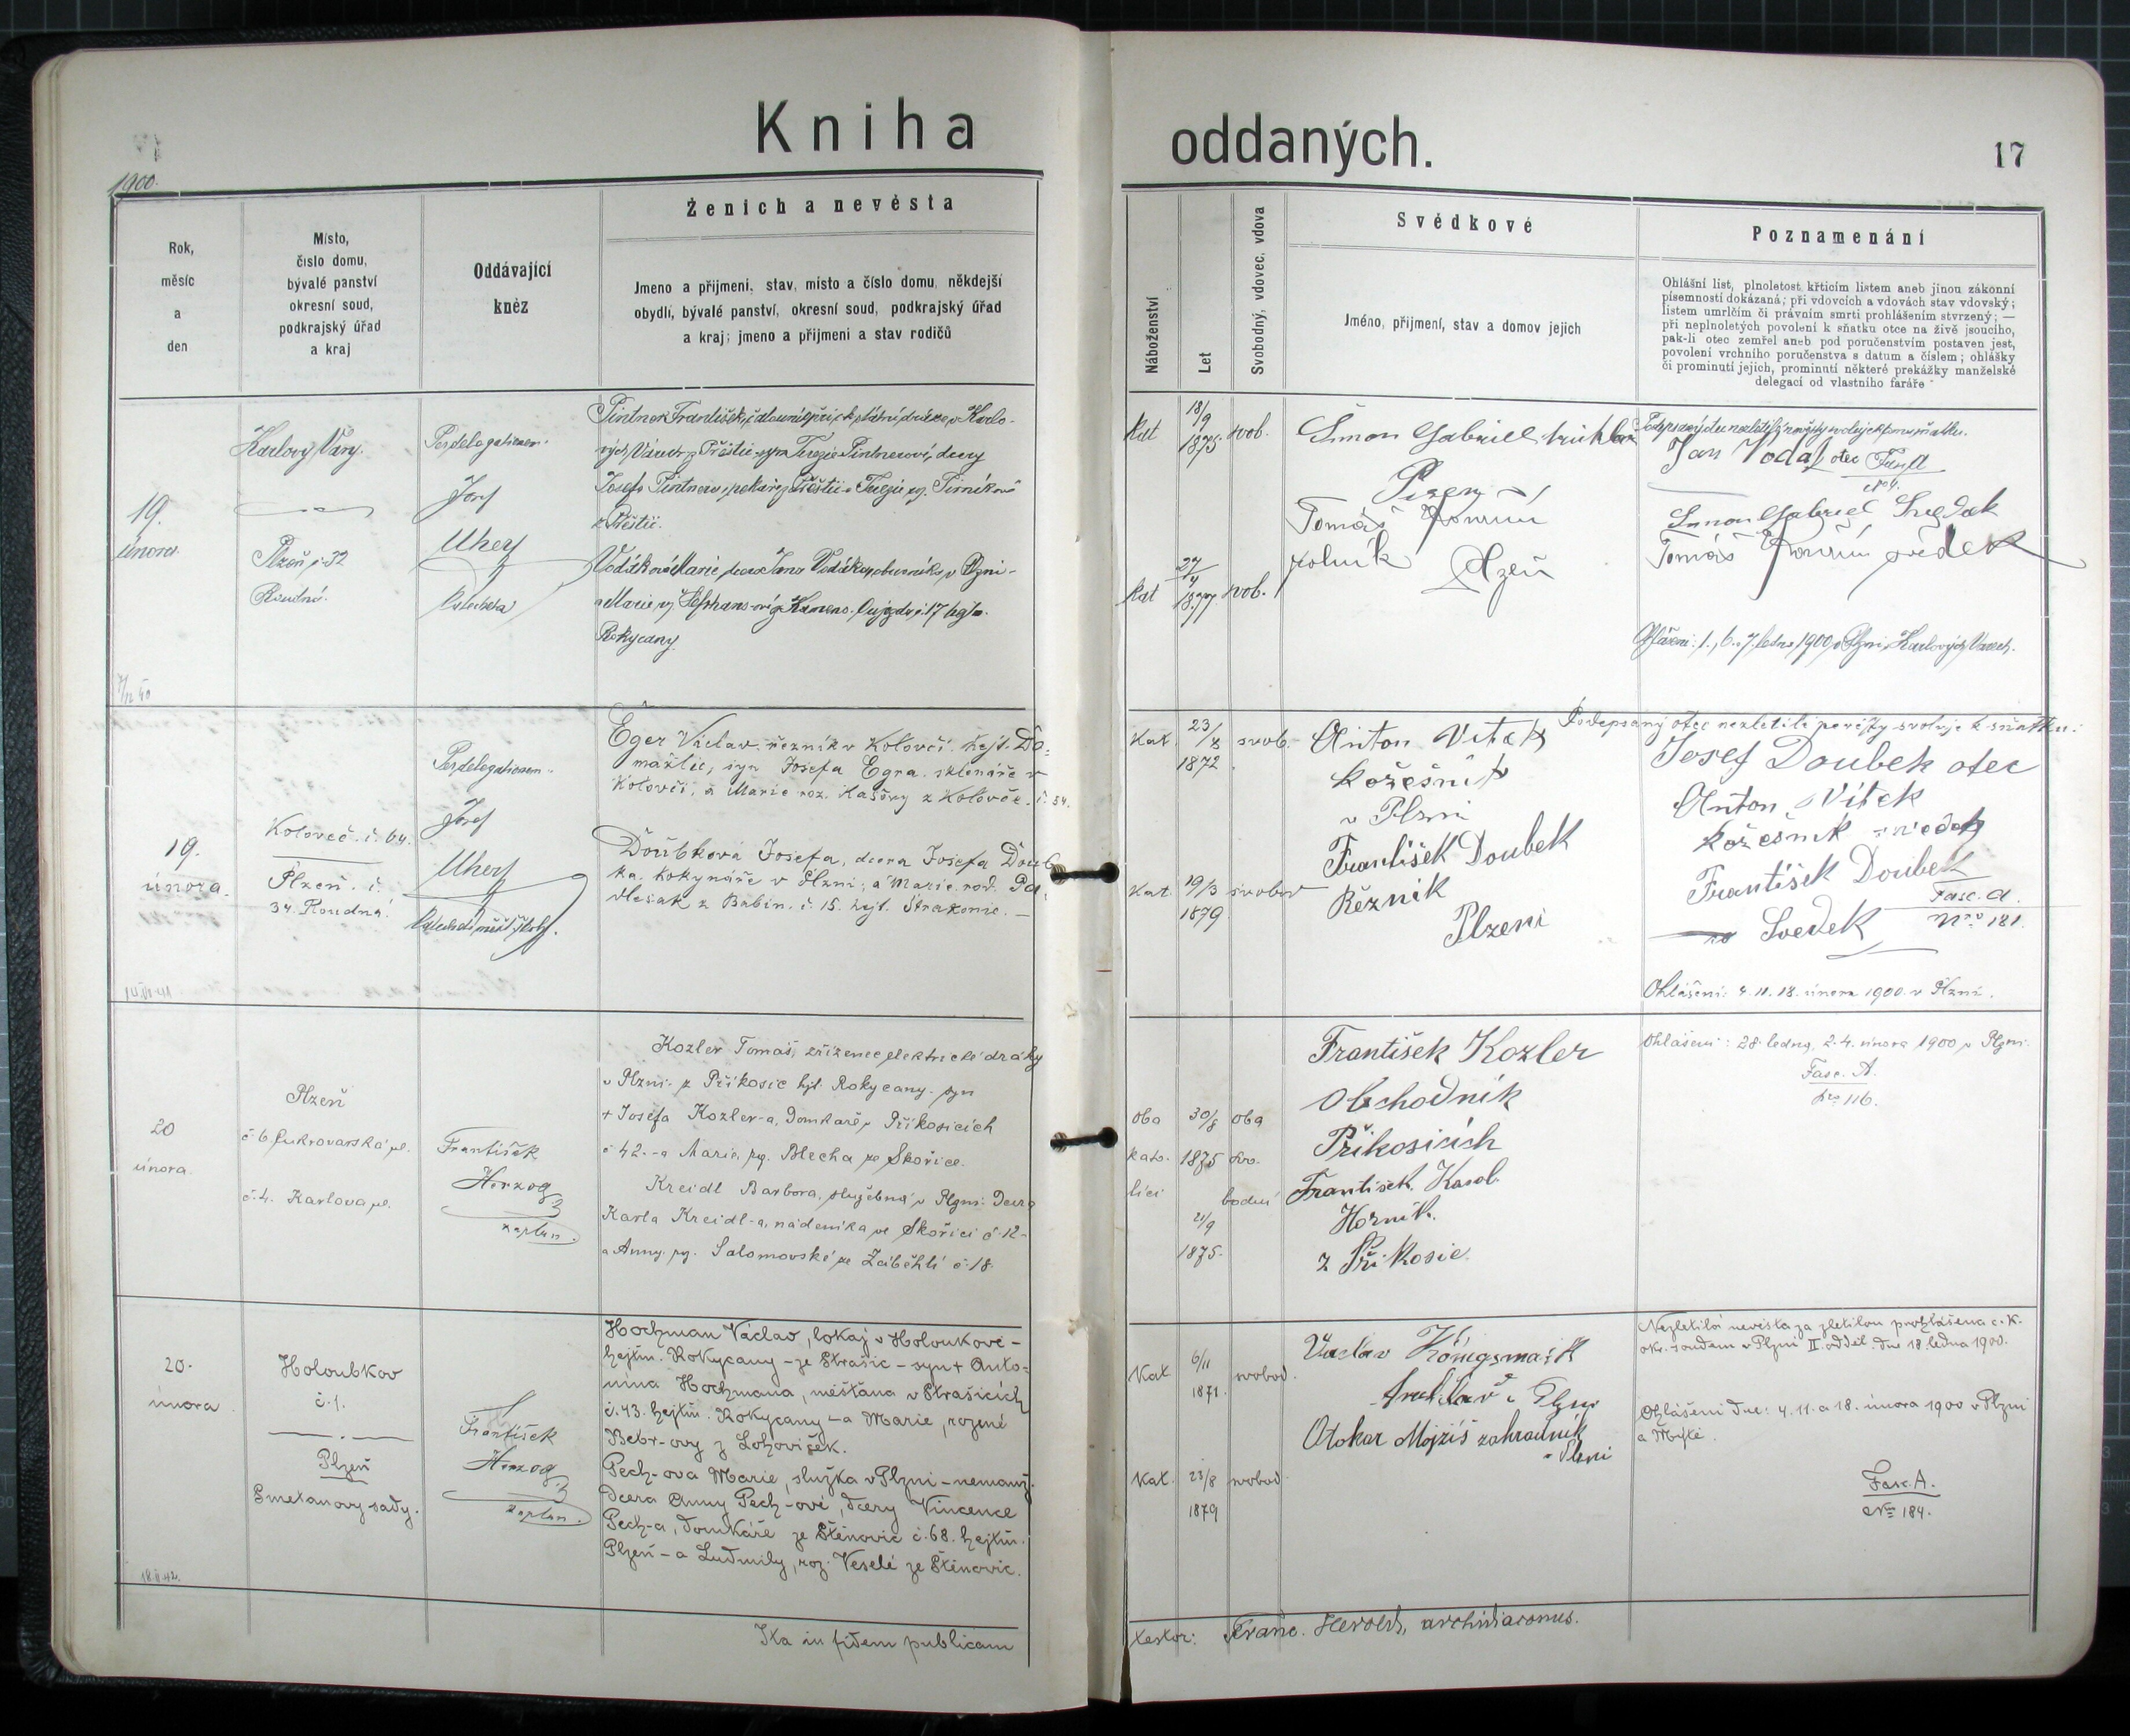 Kniha
oddaných.
17
1900.
Rok,
měsíc
a
den
Místo,
číslo domu,
bývalé panství
okresní soud,
podkrajský úřad
a kraj
Oddávající
kněz
Ženich a nevěsta
Jmeno a přijmeni, stav, misto a číslo domu, někdejší
obydlí, bývalé panství, okresní soud, podkrajský úřad
a kraj; jmeno a přijmeni a stav rodičů
Náboženství
Let
Svobodný, vdovec, vdova
Svědkové
Jméno, přijmení, stav a domov jejich
Poznamenání
Ohlášní list, plnoletost křticím listem aneb jinou zákonní
písemností dokázaná; při vdovcích a vdovách stav vdovský;
listem umrlčím či právním smrti prohlášením stvrzený; —
při neplnoletých povolení k sňatku otce na živě jsoucího,
pak-li otec zemřel aneb pod poručenstvím postaven jest,
povolení vrchního poručenstva s datum a číslem; ohlášky
či prominutí jejich, prominutí některé prekážky manželské
delegací od vlastního faráře
19.
února.
Karlovy Vary.
Plzeň č. 32
Roudná.
Per delegationem
Josef
Uherž
katecheta
Pintner František,
Josefa Pintnera, pekaře z Přeštic a Terezie
z Přeštic.
Vodáková Marie, dcera Jana Vodáka, v Plzni -
Rokycany.
kat
18/
9
1875
svob.
kat
27/
4
1877.
svob.
Šimon Gabriell truhlar
Plzen
Tomáš
rolník
Plzeň
Jan Vodak otec Fasc. A
Simon Gabriel Svedek
Tomáš svědek
Ohlášeni: 1., 6. a 7. ledna 1900 v Plzni, Karlových Varech.
19.
února.
Koloveč. č. 64.
Plzeň. č.
34. Roudná.
Per delegationem
Josef
Uherž
katecheta měšť. školy.
Eger Václav, řezník v Kolovči. hejt. Do-
mažlic, syn Josefa Egra, sklenáře v
Kolovči, a Marie roz. Kaššny z Kolovče. č. 54.
Doubková Josefa, dcera Josefa Doub-
ka. kokynáře v Plzni; a Marie. rod. Pa-
vlasak z Babin. č. 15. hejt. Strakonic. —
Kat.
23/
8
1872
svob.
Kat.
19/3
1879.
svobod
Anton Vitek
kožešnik
v Plzni
František Doubek
Řezník
Plzeni
Podepsaný otec nezletilé nevěsty svoluje k sňatku.
Josef Doubek otec
Anton Vitek
kožešnik svedek
František Doubek
Svedek
Fasc. A.
Nro 181.
Ohlášeni: 4. 11. 18. února 1900. v Plzni.
20
února.
Plzeň
č. 6 Cukrovarská ul.
č. 4. Karlova ul.
František
Herzog
kaplan.
Kozler Tomaš, zřízenec elektrické dráhy
v Plzni. z Příkosic hjt. Rokycany. syn
+ Josefa Kozler-a, Domkaře v Příkosicích
č 42. - a Marie, roz. Blecha ze Skořice.
Kreidl Barbora, služebná v Plzni. Dcera
Karla Kreidl-a, nádeníka ve Skořici č. 12 -
a Anny. roz. Salomovské ze Záběhlí č. 18.
Oba
kato-
líci
30/8
1875
21/9
1875.
oba
svo-
bodní
František Kozler
Obchodník
Příkosicích
František. Karol.
Horník.
z Příkosic.
Ohlášeni: 28. ledna, 2. 4. února 1900 v Plzni.
Fasc. A.
Nro 116.
20.
února.
Holoubkov
č. 1.
Plzeň
Smetanovy sady.
František
Herzog
kaplan.
Hochman Václav, lokaj v Holoubkově -
hejtm. Rokycany - ze Strašic - syn + Anto-
nína Hochmana, měšťana v Strašicích
č. 43. hejtm. Rokycany - a Marie, rozené
Bebr-ovy z Lohovišek.
Pech-ova Marie, služka v Plzni - nemanž.
Dcera Anny Pech-ové, dcery Vincence
Pech-a, domkáře ze Štěnovic č. 68. hejtm.
Plzeň - a Ludmily, roz. Veselé ze Štěnovic.
18.II.42.
Kat.
6/11
1871.
svobod.
Kat.
23/8
1879
svobod.
Vaclav Königsmark
Plzni
Otokar Mojžiš zahradník
v Plzni
Nezletilá nevěsta za zletilou prohlášena c. K.
okr. soudem v Plzni II. odděl. dne 18. ledna 1900.
Ohlášeni dne: 4. 11. a 18. února 1900 v Plzni
a Mýtě.
Fasc. A.
Nro 184.
Ita in fidem publicam
testor: Franc. Herold, archidiaconus.